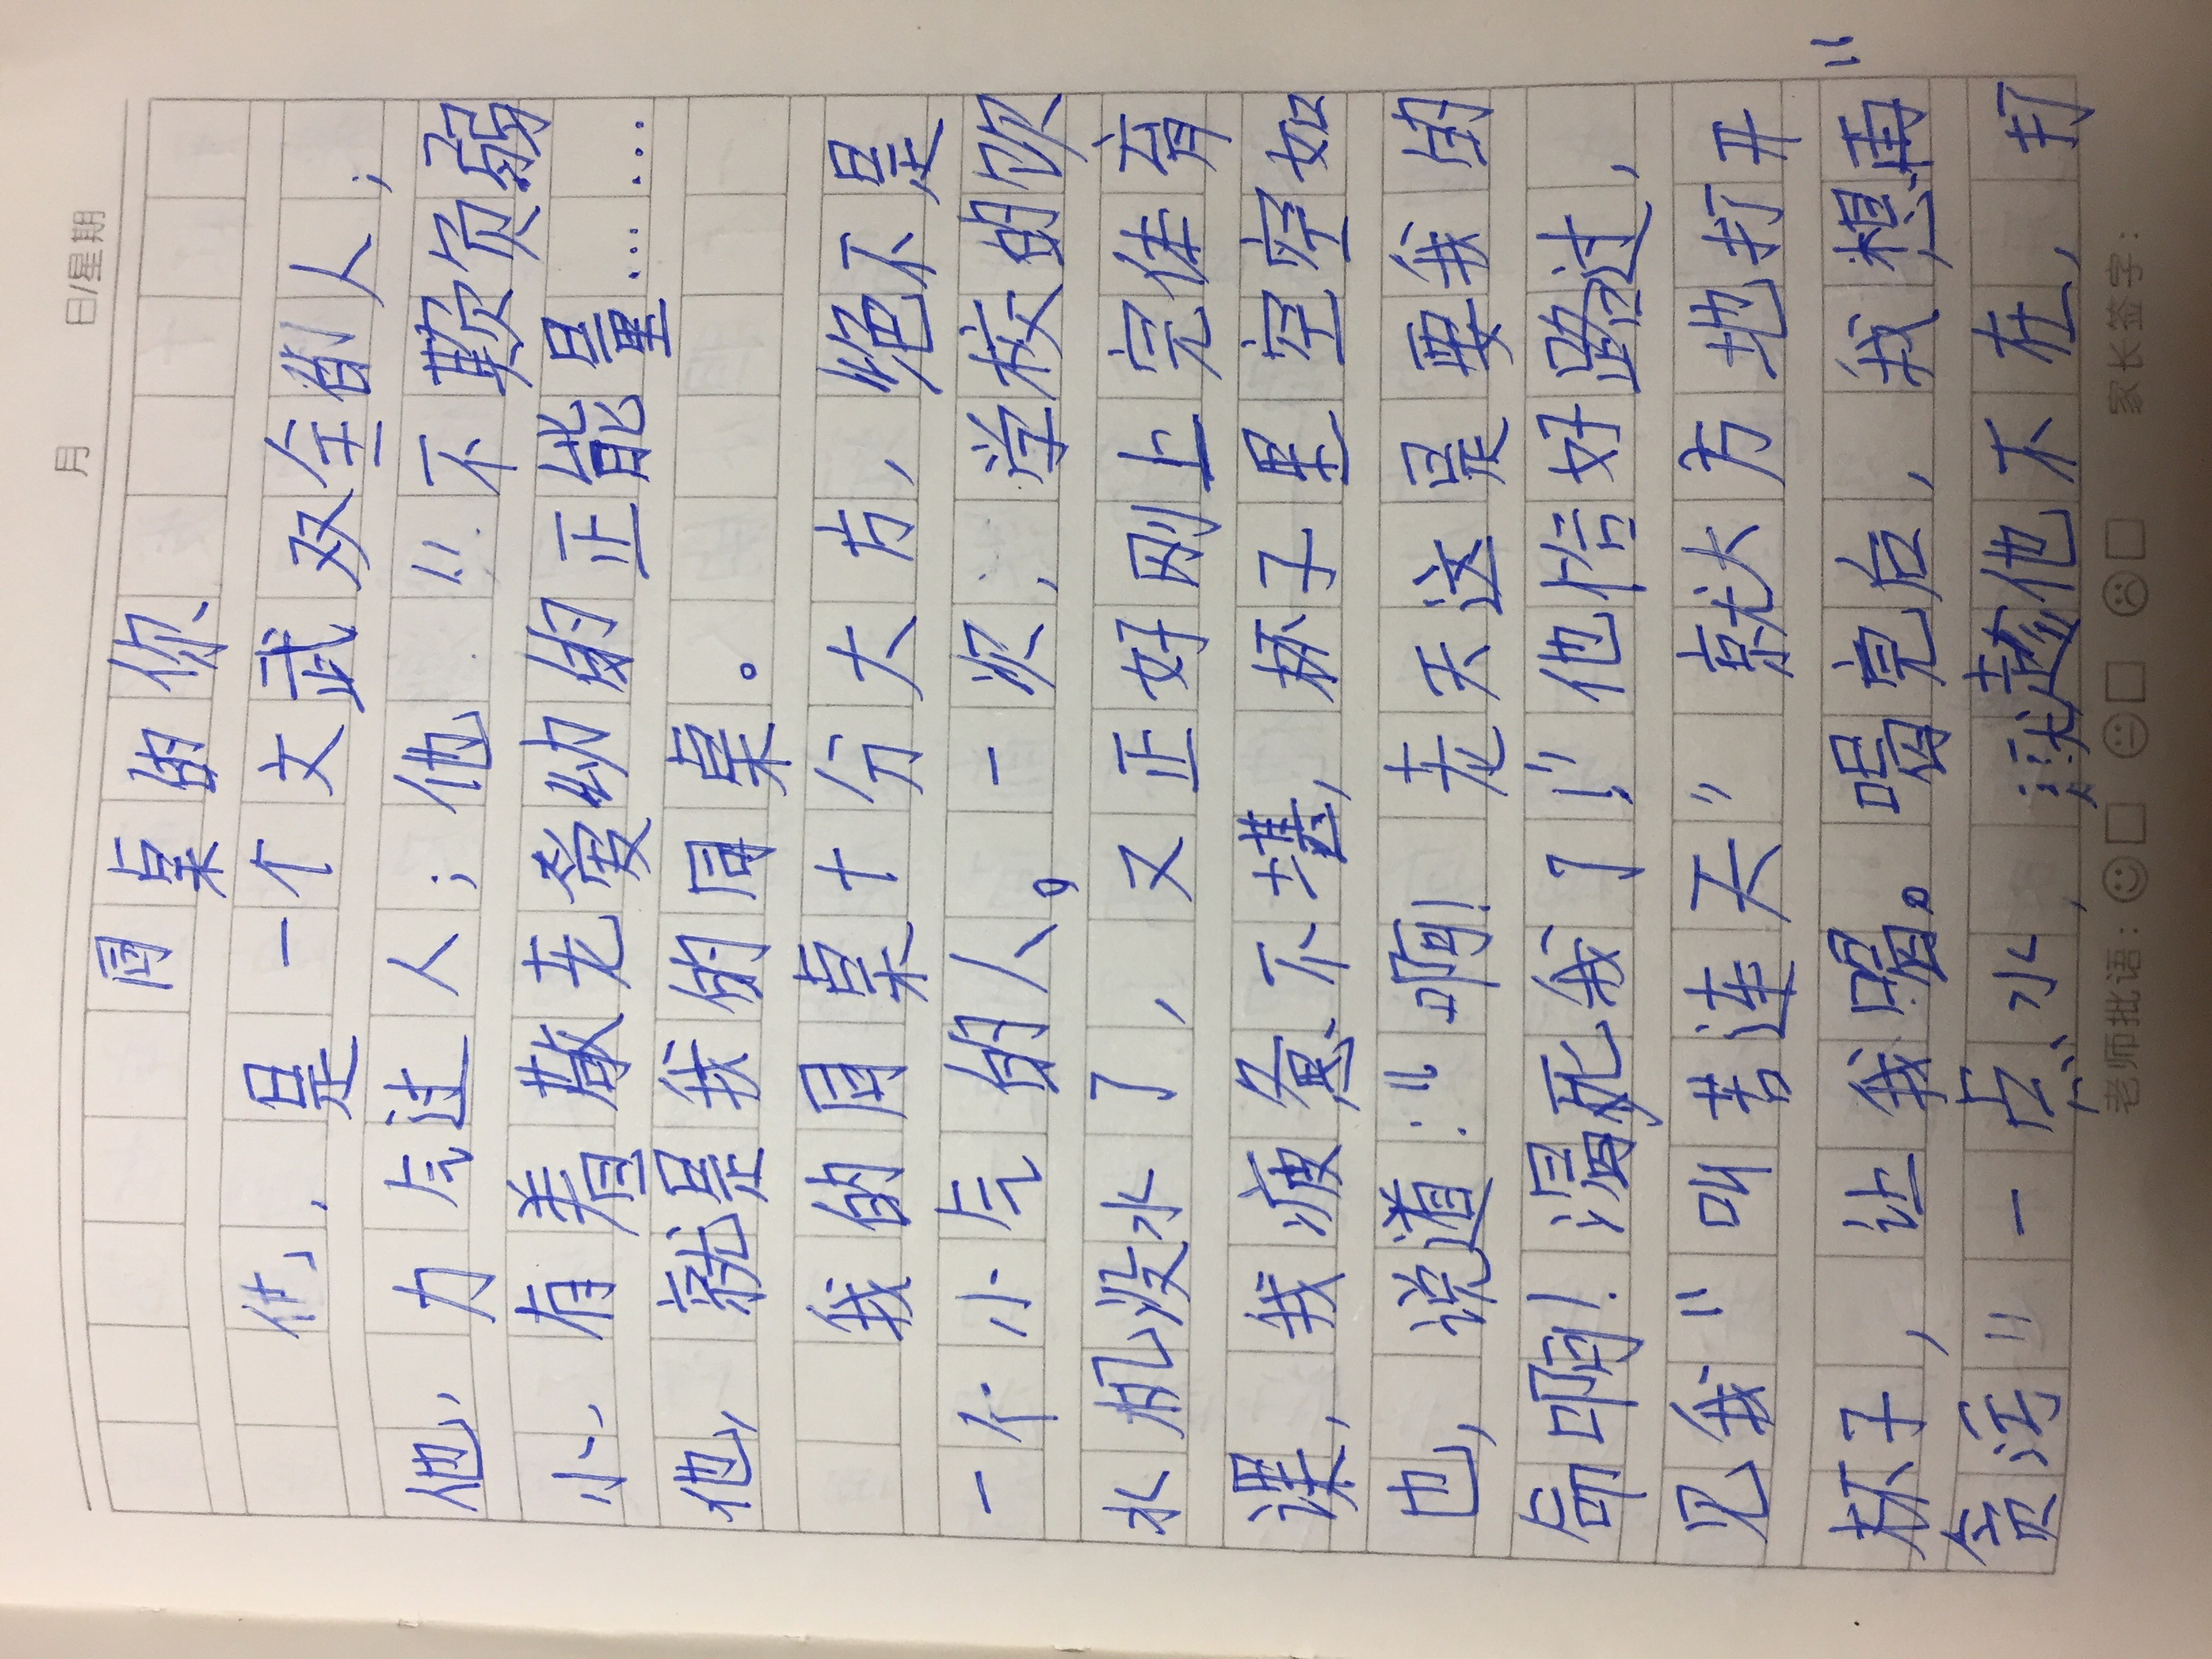 月 日/星期
同桌的你
他,是一个文武双全的人;
他,力气过人;他“不欺负弱
小,有着敬老爱幼的正能量……
他,就是我的同桌。
我的同桌十分大方,绝不是
一个小气的人。一次,学校的饮
水机没水了,又正好刚上完体育
课,我疲惫不堪,杯子里空空如
也,说道:“啊!老天这是要我的
命啊!渴死我了!”他恰好路过,
见我“叫苦连天”就大方地打开
杯子,让我喝。喝完后,我想再“
贪污”一点水,趁他不在,打
老师批语: 家长签字: